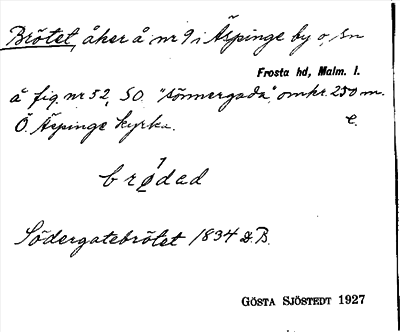 Brötet, åker å nr 9 i Äspinge by o. sn
Frosta hd, Malm. l.
å fig. nr 52, SO. "Sönnergada", omkr. 250 m.
Ö. Äspinge kyrka. C.
brødad
Södergatebrötet 1834 D.B.
GÖSTA SJÖSTEDT 1927